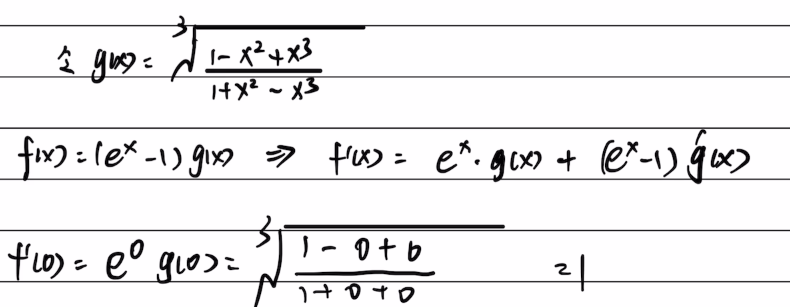 令 g(x) = ∛((1-x²+x³)/(1+x²-x³))
f(x) = (eˣ-1) g(x) ⇒ f'(x) = eˣ · g(x) + (eˣ-1) g'(x)
f'(0) = e⁰ g(0) = ∛((1-0+0)/(1+0+0)) = 1